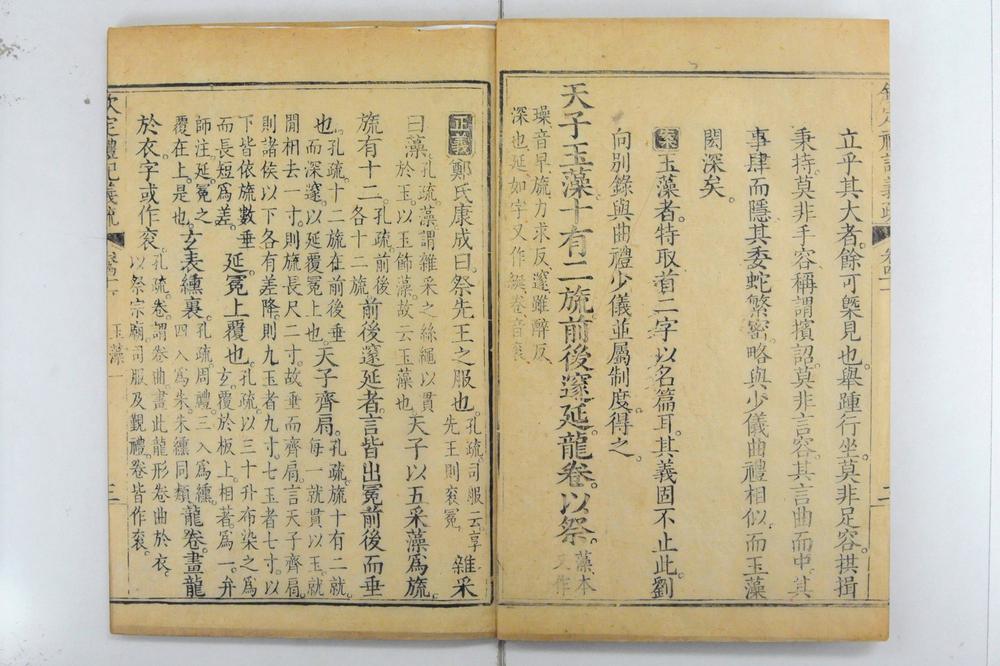 立乎其大者餘可槩見也舉踵行坐莫非足容拱揖
秉持莫非手容稱謂擯詔莫非言容其言曲而中其
事肆而隱其委蛇繁密略與少儀曲禮相似而玉藻
閎深矣
案玉藻者特取首二字以名篇耳其義固不止此劉
向別錄與曲禮少儀並屬制度得之
天子玉藻十有二旒前後邃延龍卷以祭藻本又作
璪音早旒力求反邃雖醉反
深也延如字又作綖卷音袞
正義鄭氏康成曰祭先王之服也孔疏司服云享先王則袞冕雜采
曰藻孔疏藻謂雜采之絲繩以貫於玉以玉飾藻故云玉藻也天子以五采藻為旒
旒有十二孔疏前後各十二旒前後邃延者言皆出冕前後而垂
也孔疏十二旒在前後垂而深邃以延覆冕上也天子齊肩孔疏旒十有二就每一就貫以玉就
閒相去一寸則旒長尺二寸故垂而齊肩言天子齊肩
則諸侯以下各有差降則九玉者九寸七玉者七寸以
下皆依旒數垂而長短為差延冕上覆也孔疏以三十升布染之為玄覆於板上相著為一弁
師注延冕之覆在上是也玄表纁裏孔疏周禮三入為纁四入為朱朱纁同類龍卷畫龍
於衣字或作袞孔疏卷謂卷曲畫此龍形卷曲於衣以祭宗廟司服及覲禮卷皆作袞
欽定禮記義疏
玉藻一
二